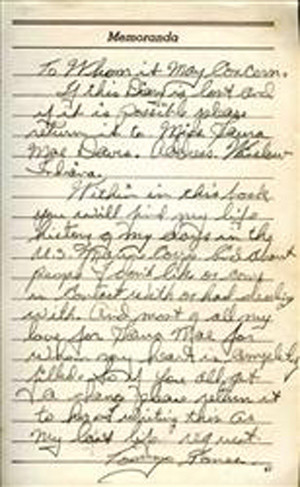 Memoranda
To Whom it May Concern.
If this Diary is lost and
if it is possible please
return it to Miss Laura
Mae Davis. Address. Winslow
Indiana.
Within in this book
you will find my life
history of my days in the
U.S. Marine Corps. But about
people I don't like or come
in contact with or had dealing
with. And most of all my
love for Laura Mae for
whom my heart is completely
filled. So if you all get
a chance please return it
to her. I writing this as
my last life request.